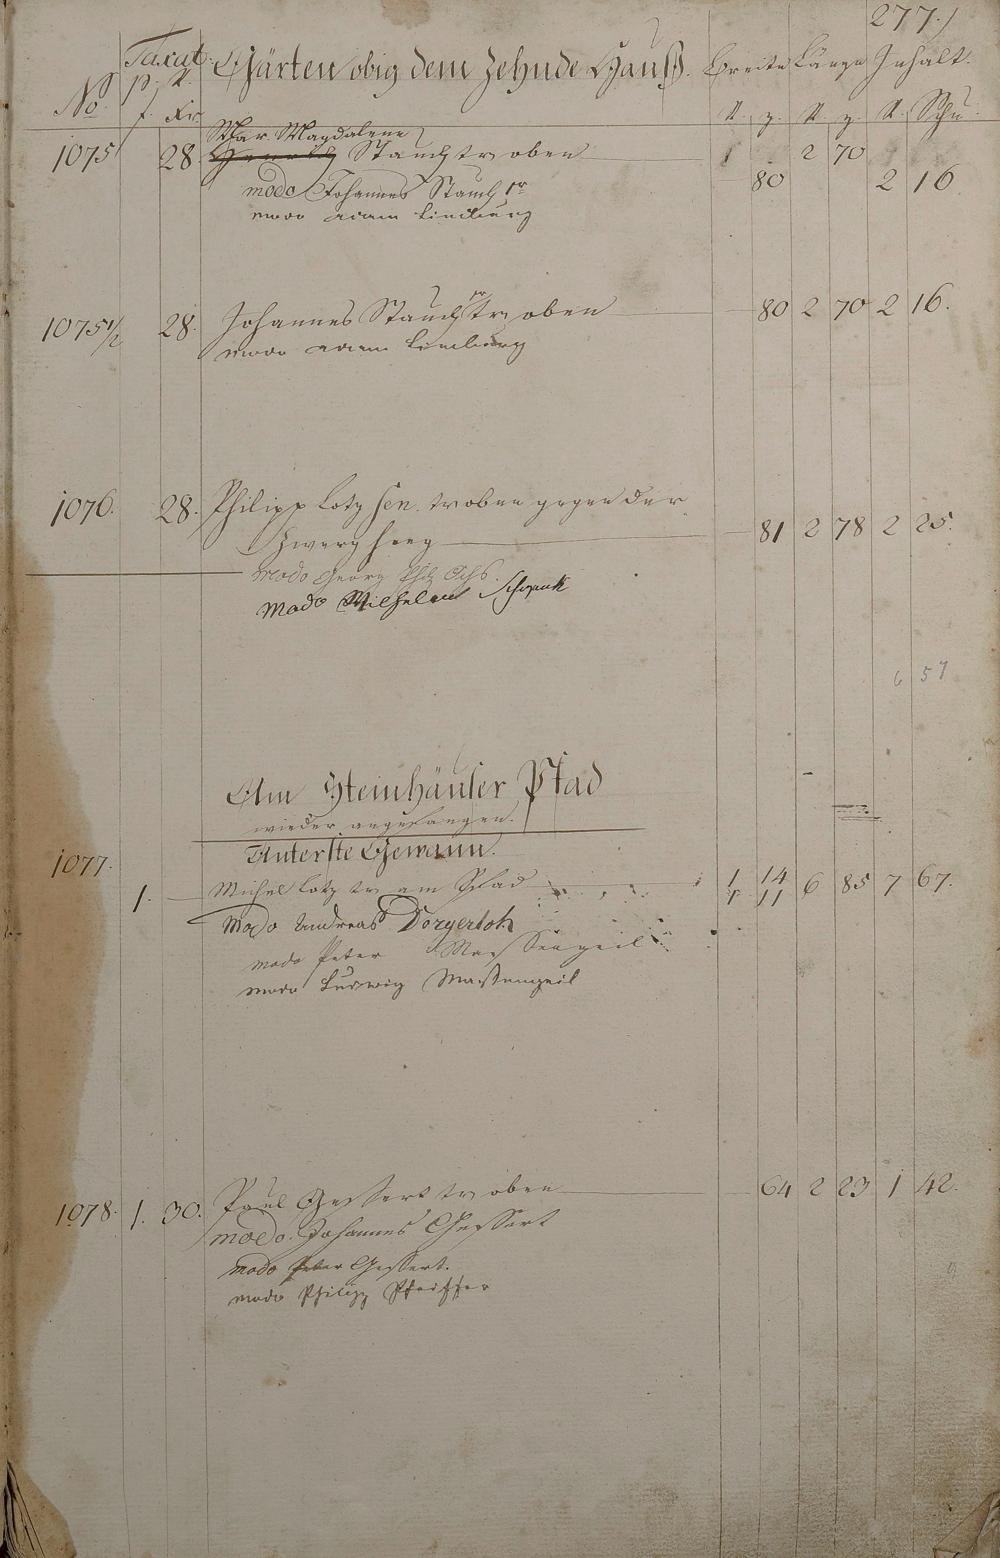 277.)
Taxat. Gärten obig dem Zehnde Hauß. Breite Länge Inhalt.
No. p. R.
f. Xr. R. z. R. z. R. Schu
Mar. Magdalene
1075 28 Henrich Stauch tr oben 1 2 70
modo Johannes Stauch 1r 80 2 16
modo Adam Limburg
1075 1/2 28. Johannes Stauch tr oben 80 2 70 2 16.
modo Adam Limburg
1076. 28. Philipp Lotz sen. tr oben gegen der 81 2 78 2 25.
Zwerg
modo Georg Phil. Ochs.
Modo Wilhelm Schwenk
6 57
Am Steinhäuser Pfad
wieder angefangen.
1077. Unterste Gewann.
1. Michel Lotz tr am Pfad 1 14 6 85 7 67.
1 11
Modo Andreas Dörgerloh
modo Peter Massengeil
modo Ludwig Massengeil
1078. 1. 30. Paul Gessert tr oben 64 2 23 1 42.
modo. Johannes Gessert
modo Peter Gessert.
modo Philipp Pfeiffer